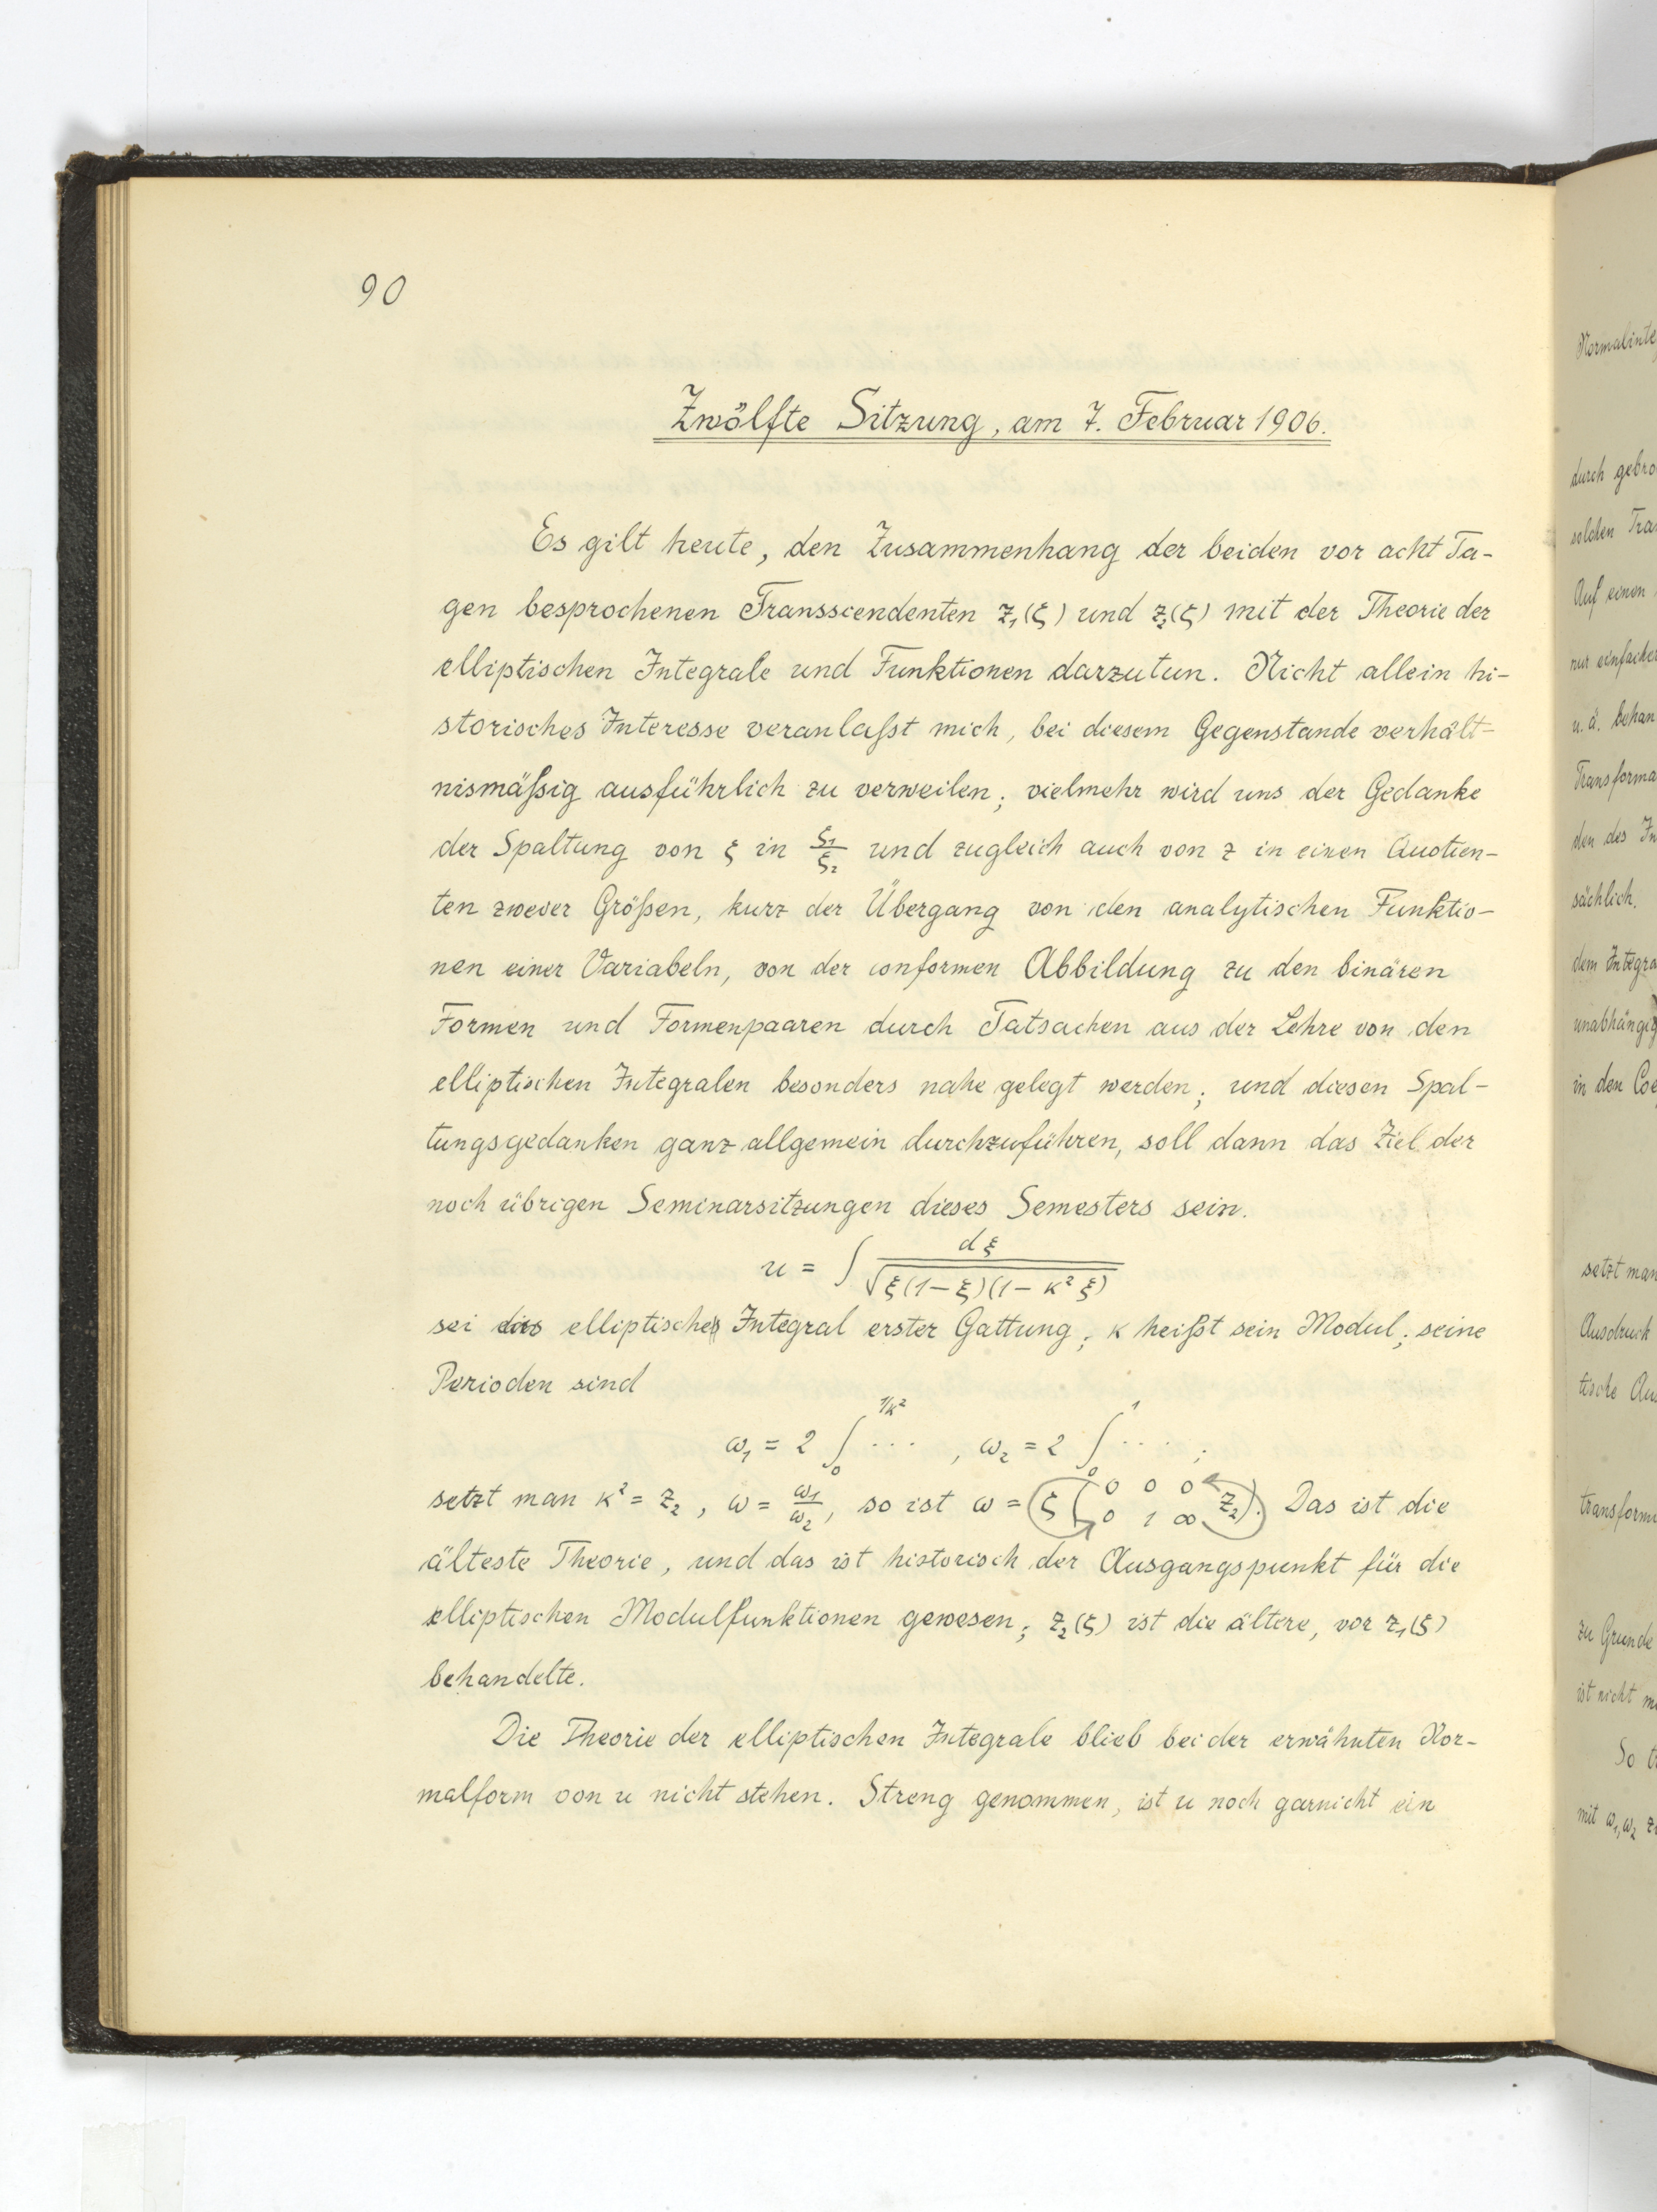 90
Zwölfte Sitzung, am 7. Februar 1906.
Es gilt heute, den Zusammenhang der beiden vor acht Ta-
gen besprochenen Transscendenten z₁(ξ) und z₂(ξ) mit der Theorie der
elliptischen Integrale und Funktionen darzutun. Nicht allein hi-
storisches Interesse veranlaßt mich, bei diesem Gegenstande verhält-
nismäßig ausführlich zu verweilen; vielmehr wird uns der Gedanke
der Spaltung von ξ in ξ₁/ξ₂ und zugleich auch von z in einen Quotien-
ten zweier Größen, kurz der Übergang von den analytischen Funktio-
nen einer Variabeln, von der conformen Abbildung zu den binären
Formen und Formenpaaren durch Tatsachen aus der Lehre von den
elliptischen Integralen besonders nahe gelegt werden; und diesen Spal-
tungsgedanken ganz allgemein durchzuführen, soll dann das Ziel der
noch übrigen Seminarsitzungen dieses Semesters sein.
u = ∫ dξ / √ξ(1-ξ)(1-κ²ξ)
sei das elliptische Integral erster Gattung; κ heißt sein Modul; seine
Perioden sind
ω₁ = 2 ∫₀^{1/κ²} ... , ω₂ = 2 ∫₀^{1} .... ;
setzt man κ² = z₂, ω = ω₁/ω₂, so ist ω = ξ (0 0 0 / 0 1 ∞ z₂). Das ist die
älteste Theorie, und das ist historisch der Ausgangspunkt für die
elliptischen Modulfunktionen gewesen; z₂(ξ) ist die ältere, vor z₁(ξ)
behandelte.
Die Theorie der elliptischen Integrale blieb bei der erwähnten Nor-
malform von u nicht stehen. Streng genommen, ist u noch garnicht ein
Normalinte
durch gebro
solchen Tra
Auf einen
nur einfache
u. ä. behan
Transforma
den des In
sächlich.
dem Integra
unabhängig
in den Coe
setzt man
Ausdruck
tische Au
transformi
zu Grunde
ist nicht m
So t
mit ω₁, ω₂ z